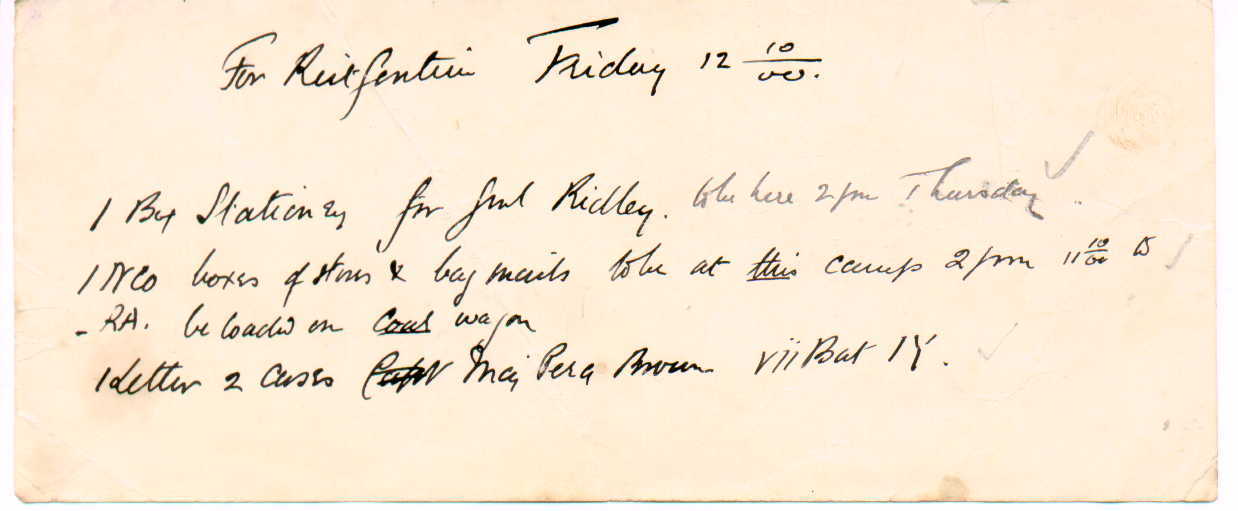 For Rietfontein Friday 12 10/00.
1 Box Stationery for Genl Ridley. to be here 2 pm Thursday
1 NCO boxes of stores & bag mails to be at this camp 2 pm 11 10/00 to
- RA. be loaded on Coal wagon
1 Letter 2 cases Capt Maj Percy Browne vii Bat IY.